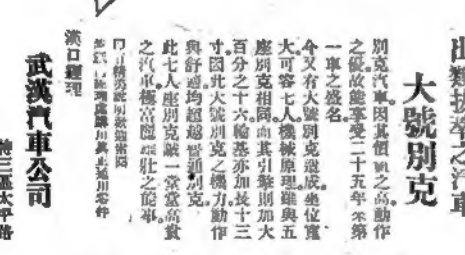 出類拔萃之汽車
大號別克
別克汽車。因其價 之高動作
之優。故能享受二十五年來第
一車之盛名。
今又有大號別克造成。坐位寬
大可容七人。機械原理。雖與五
座別克相同。而其引擎則加大
百分之十六。輪基亦加長十三
寸。因此大號別克之機力動作
與舒適。均超越普通別克。
此七人座別克誠一堂堂富貴
之汽車。極富麗 壯之能事。
漢口經理
武漢汽車公司
太平路